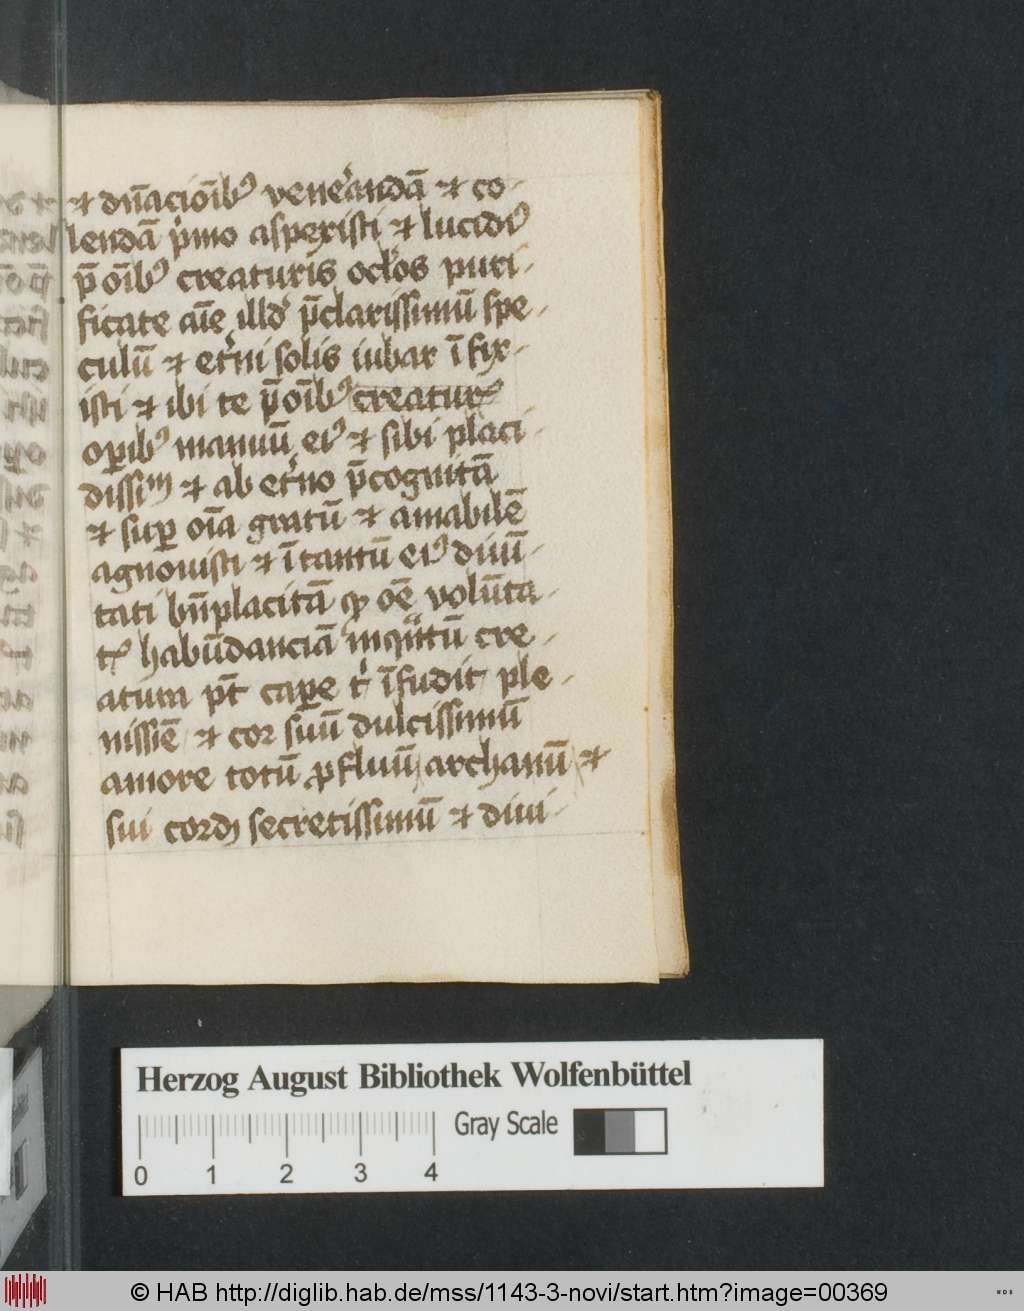 ⁊ dn̄acioīb⁹ vene᷑andā ⁊ co-
lendā p͛mo aspexisti ⁊ lucidi⁹
p̄ oīb⁹ creaturis oc̄los puri-
ficate aīe illd͛ p̄clarissimū spe-
culū ⁊ et͛ni solis iubar ī fix-
isti ⁊ ibi te p̄ oīb⁹ creatur⁹
op̲ib⁹ manuū ei⁹ ⁊ sibi placi-
dissim̄ ⁊ ab et͛no p̄cognitā
⁊ sup̲ oīa gratū ⁊ amabilē
agnouisti ⁊ ī tantū ei⁹ diuī-
tati bn̄placitā qͥ oē volūta-
habūdanciā inqͣntū cre-
atum pt̄ cap̲e t͛ īfudit ple-
nissiē ⁊ cor suū dulcissimū
amore totū ꝓfluū archanū ⁊
sui cordꝭ secretissimū ⁊ diui-
Herzog August Bibliothek Wolfenbüttel
Gray Scale
0 1 2 3 4
© HAB http://diglib.hab.de/mss/1143-3-novi/start.htm?image=00369